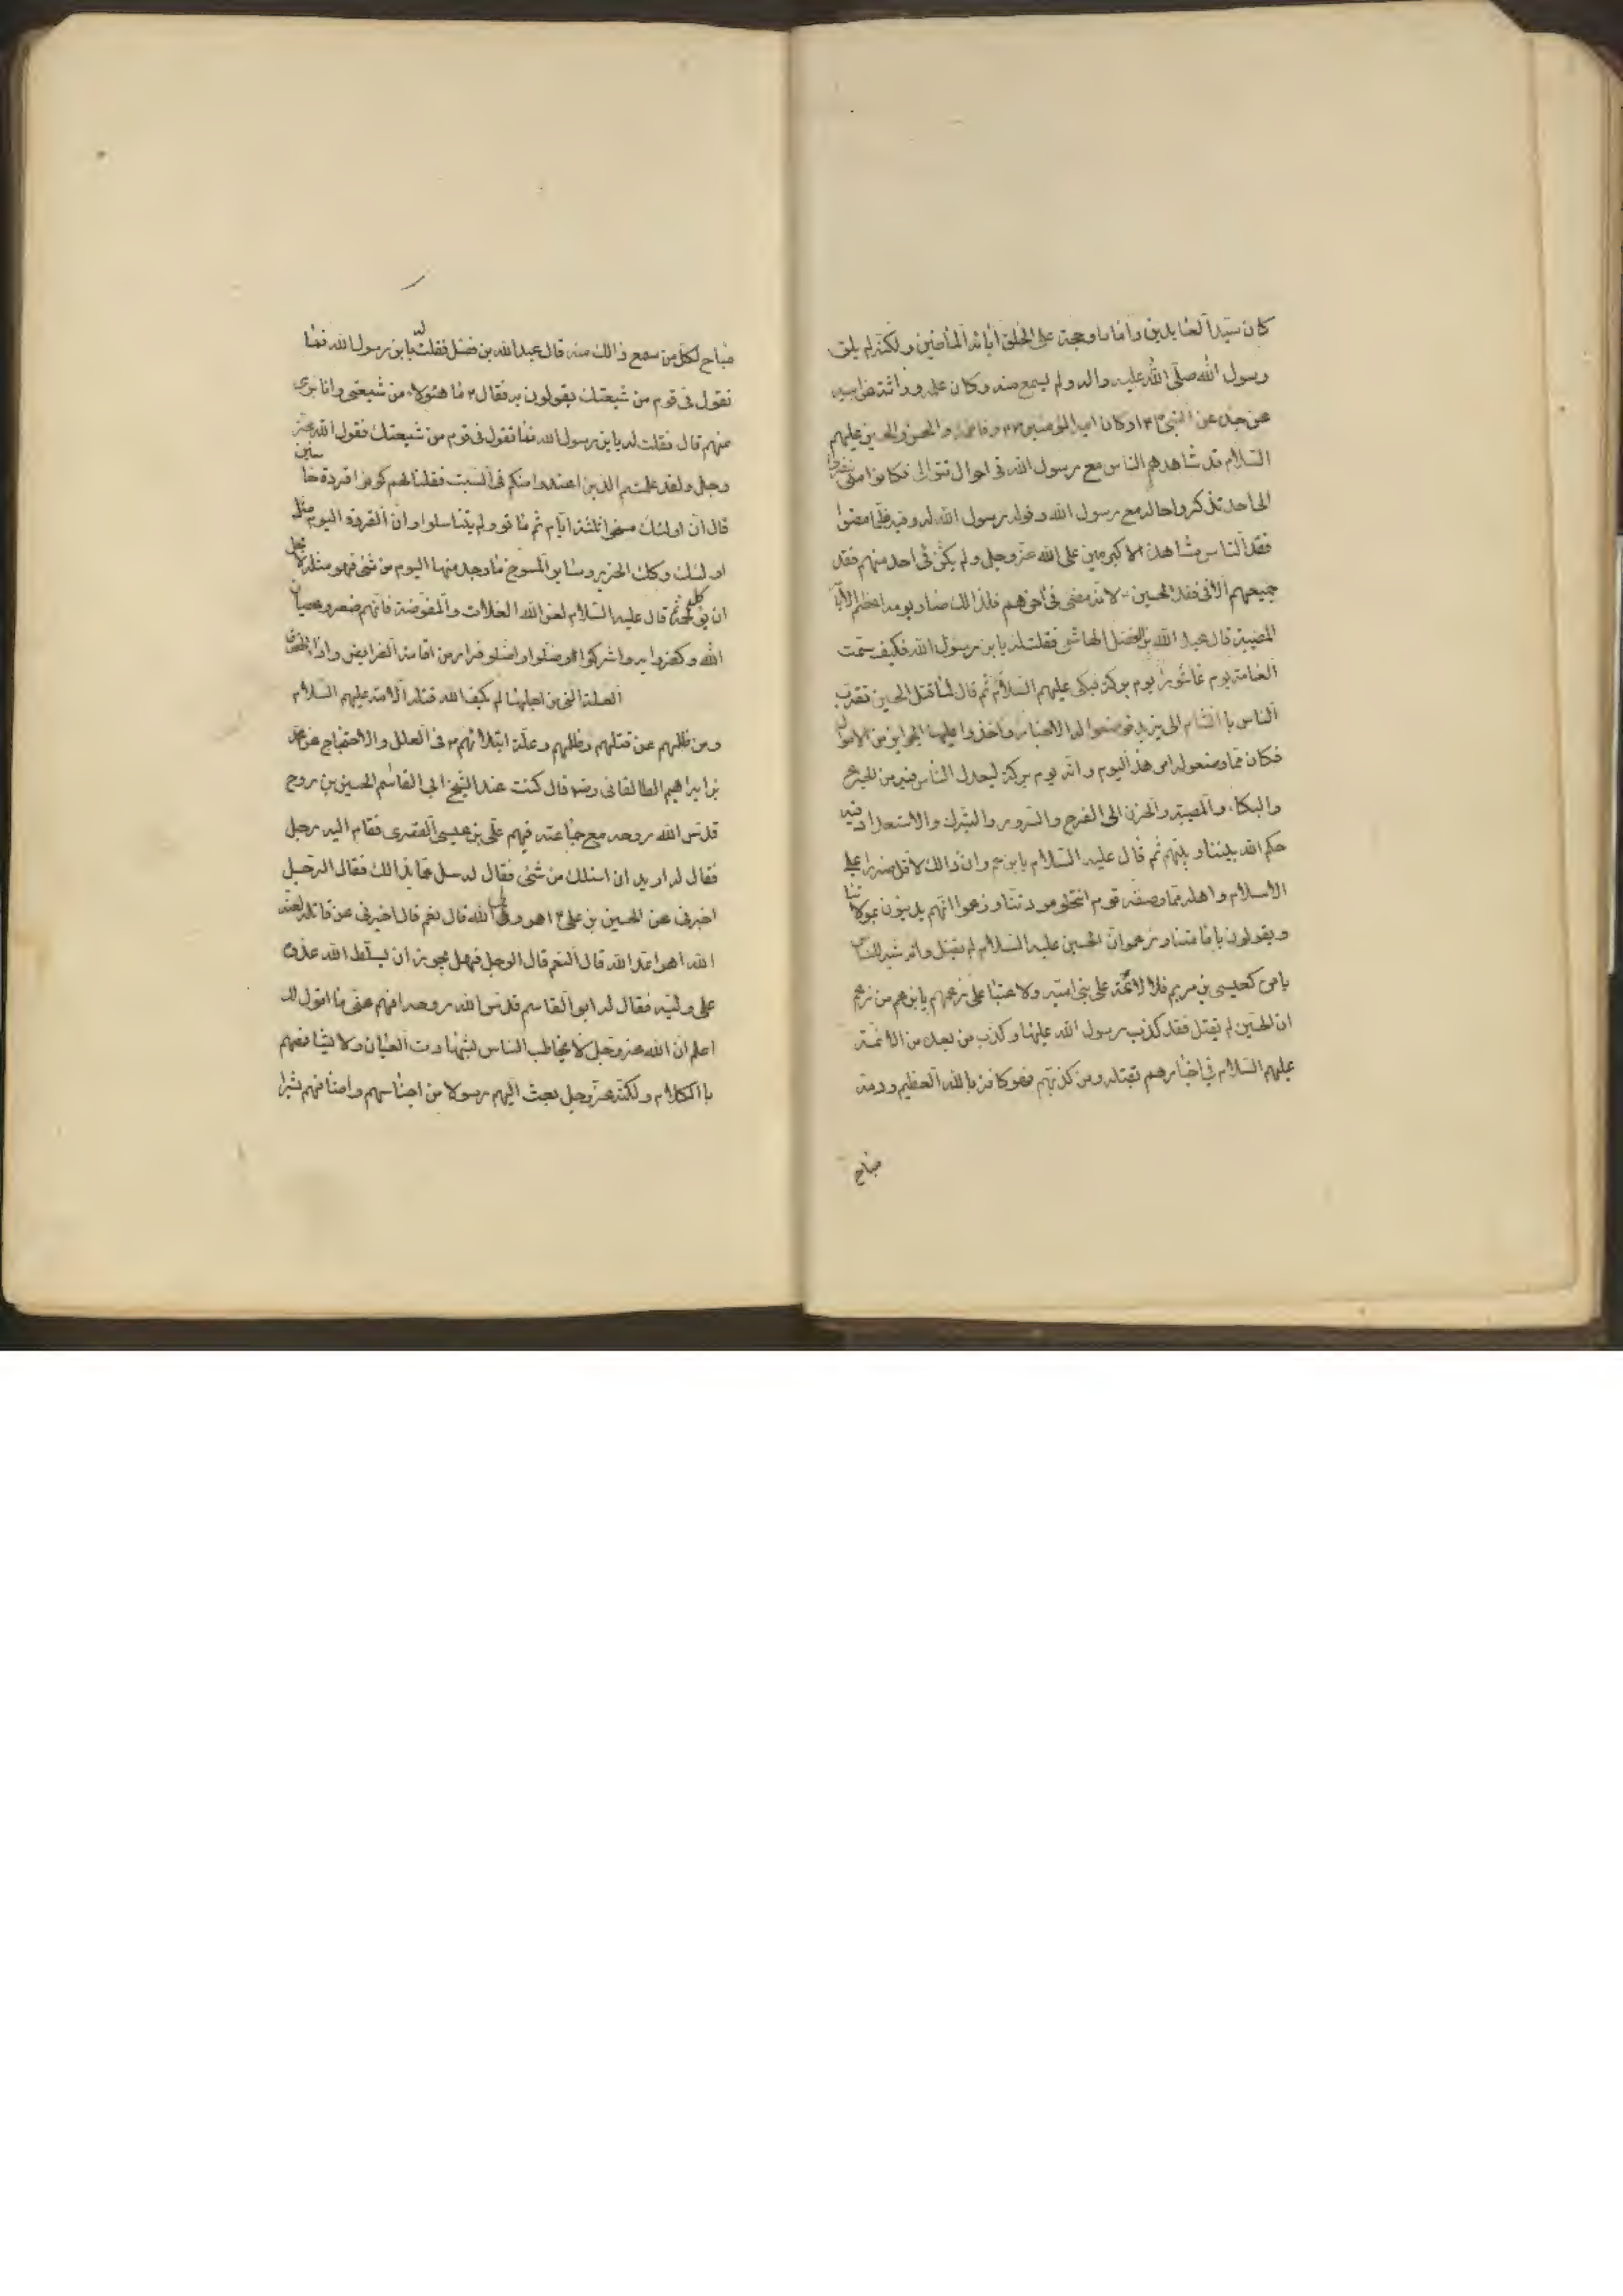 كان سيد العابدين واماما وحجة على الخلق ابائه الماضين ولكنه لم يلق
رسول الله صلى الله عليه واله ولم يسمع منه وكان علمه وراثة عن ابيه
عن جده عن النبي وكان امير المؤمنين وفاطمة والحسن والحسين عليهم
السلام قد شاهدهم الناس مع رسول الله في احوال تتوالى فكانوا متى نظروا
الى احد تذكروا حاله مع رسول الله وقول رسول الله له وفيه فلما مضوا
فقد الناس مشاهدة الاكرمين على الله عز وجل ولم يكن في احد منهم فقد
جميعهم الا في فقد الحسين لانه مضى في اخرهم فلذالك صار يومه اعظم الايام
المصيبة قال عبد الله بن الفضل الهاشمي فقلت له يا بن رسول الله فكيف سمت
العامة يوم عاشورا يوم بركة فبكى عليهم السلام ثم قال لما قتل الحسين تقرب
الناس با الشام الى يزيد فوضعوا له الاخبار واخذوا عليها الجوايز من الاموال
فكان مما وضعوله امر هذ اليوم وانه يوم بركة ليعدل الناس فيه من الجزع
والبكاء والمصيبة والحزن الى الفرح والسرور والتبرك والاستعداد فيه
حكم الله بيننا وبينهم ثم قال عليه السلام يا بن عم وان ذالك لاقل ضررا على
الاسلام واهله مما وضعه قوم انتحلو مودتنا وزعموا انهم يدينون بموالاتنا
ويقولون بامامتنا وزعموا ان الحسين عليه السلام لم يقتل وانه شبه للناس
امره كعيسى بن مريم فلا لائمة على بني امية ولا عتبا على زعمهم يا بن عم من زعم
ان الحسين لم يقتل فقد كذب رسول الله عليها وكذب من بعده من الائمة
عليهم السلام في اخبارهم بقتله ومن كذبهم فهو كافر بالله العظيم ودمه
مباح
مباح لكل من سمع ذالك منه قال عبد الله بن فضل فقلت له يا بن رسول الله فما
تقول في قوم من شيعتك يقولون به فقال ما هئولاء من شيعتي وانا برى
منهم قال فقلت له يا بن رسول الله فما تقول في قوم من شيعتك فقول الله عز
وجل ولقد علمتم الذين اعتدوا منكم في السبت فقلنا لهم كونوا قردة خاسئين
قال ان اولئك مسخوا ثلثة ايام ثم ماتو ولم يتناسلوا وان القردة اليوم مثل
اولئك وكك الخنزير وساير المسوخ ما وجد منها اليوم من شئ فهو مثله لا يحل
ان يوكل لحمه ثم قال عليه السلام لعن الله الغلات والمفوضة فانهم صغروا عصيان
الله وكفروا به واشركوا وضلوا واضلو فرارا من اقامة الفرايض واداء الحقوق
العلة التي من اجلها لم يكف الله قتلة الائمة عليهم السلام
ومن ظلمهم عن قتلهم وظلمهم وعلة ابتلائهم في العلل والاحتجاج عن محمد
بن ابراهيم الطالقاني رضه قال كنت عند الشيخ ابي القاسم الحسين بن روح
قدس الله روحه مع جماعة فيهم علي بن عيسى القصرى فقام اليه رجل
فقال له اريد ان اسئلك من شئ فقال له سل عما بدالك فقال الرجل
اخبرني عن الحسين بن علي اهو ولي الله قال نعم قال اخبرني عن قاتله لعنه
الله اهو عدو الله قال النعم قال الرجل فهل يجوز ان يسلط الله عدوه
على وليه فقال له ابو القاسم قدس الله روحه افهم عني ما اقول لك
اعلم ان الله عز وجل لا يخاطب الناس بشهادت العيان ولا يشافههم
با الكلام ولكنه عز وجل بعث اليهم رسولا من اجناسهم واصنافهم بشرا